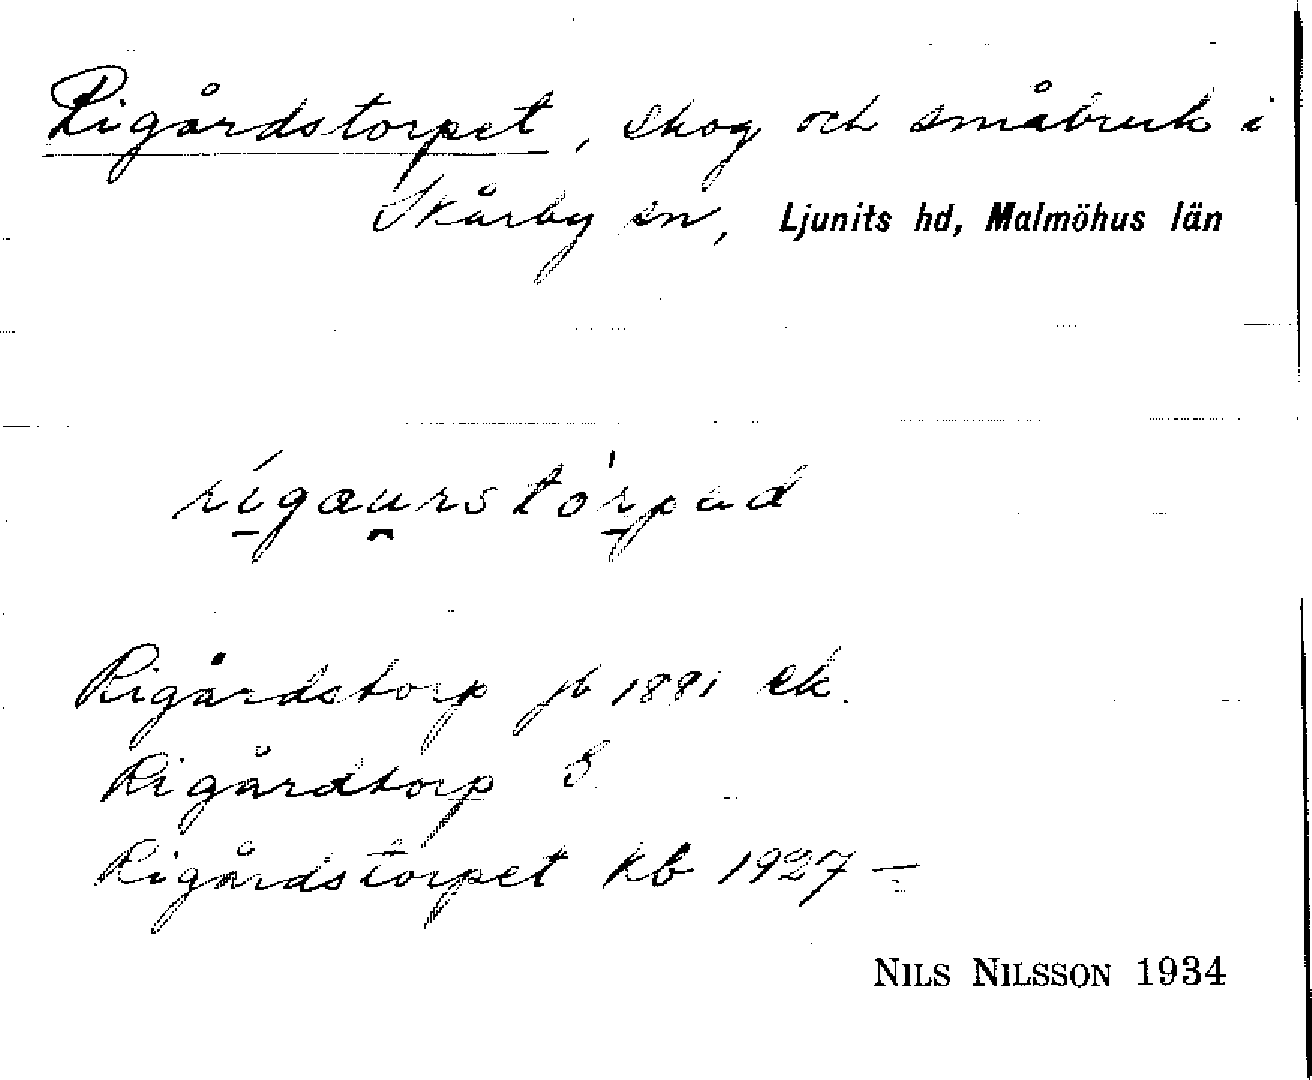 Rigårdstorpet, skog och småbruk i
Skårby sn, Ljunits hd, Malmöhus län
rígaurstórpad
Rigårdstorp jb 1881 ek.
Rigårdtorp
Rigårdstorpet kb 1927 –
NILS NILSSON 1934